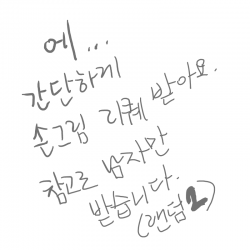 에...
간단하게
손그림 리퀘 받아요.
참고로 남자만
받습니다.
(랜덤2)